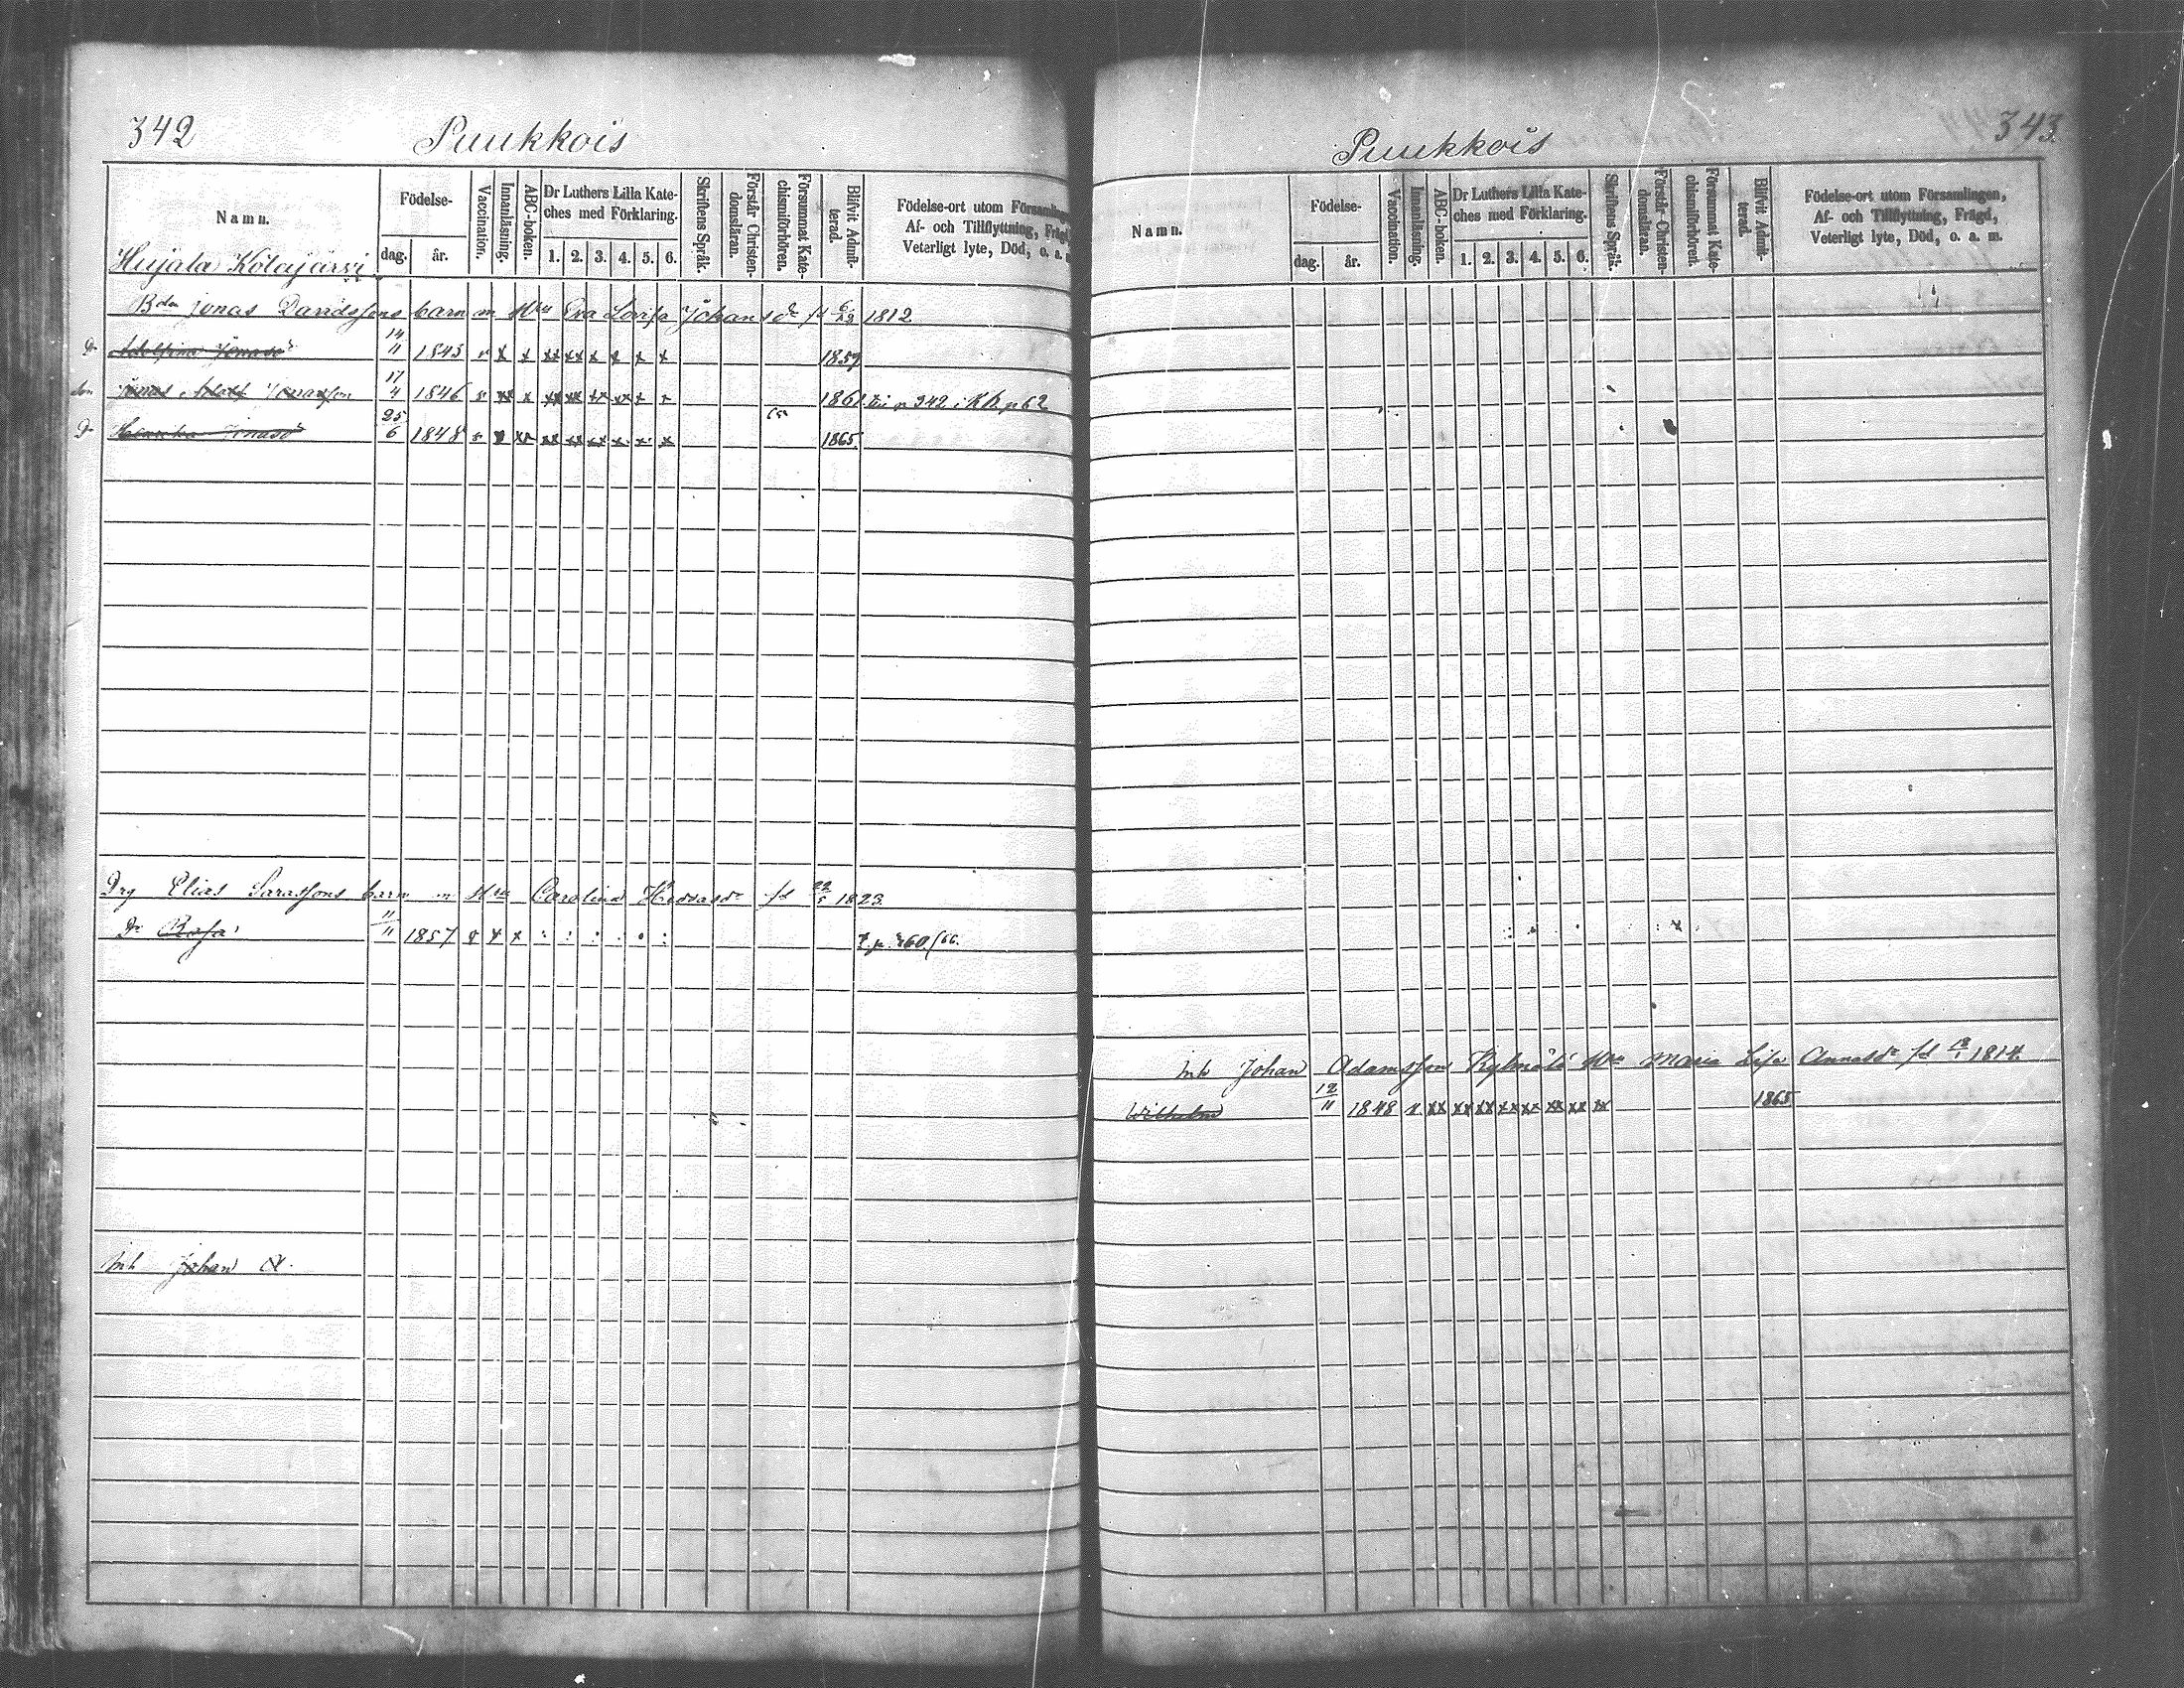 342 Puukkois
Namn. Födelse- dag. år. Vaccination. Innanläsning. ABC-boken. Dr Luthers Lilla Kate-ches med Förklaring. 1. 2. 3. 4. 5. 6. Skriftens Språk. Förstår Christen-domsläran. Försummat Kate-chismiförhören. Blifvit Admit-terad. Födelse-ort utom Församlingen, Af- och Tillflyttning, Frägd, Veterligt lyte, Död, o. a. m.
Hujala Kolajärvi
Bden Jonas Davidssons barn m Hru Eva Lovisa Johansdr fd 6/12 1812
Dr Adolfina Jonasdr 14/11 1843 x x xx xx x x x x 1859
Son Jonas Adolf Jonasson 17/4 1846 xx x xx xx xx xx x x 1861 p 342 i KB p 62
Dr Henrika Jonasdr 25/6 1848 x xx xx xx xx x x x 65 1865
Drg Elias Sarassons barn m Hru Carolina fd 22/5 1823
Dr Rosa 11/11 1857 x x x : : : . . : p. 360/66.
Inh Johan A.
343. Puukkois
Namn. Födelse- dag. år. Vaccination. Innanläsning. ABC-boken. Dr Luthers Lilla Kate-ches med Förklaring. 1. 2. 3. 4. 5. 6. Skriftens Språk. Förstår Christen-domsläran. Försummat Kate-chismiförhöret. Blifvit Admit-terad. Födelse-ort utom Församlingen, Af- och Tillflyttning, Frägd, Veterligt lyte, Död, o. a. m.
Inh Johan Adamsson Hru Maria Lisa Annasdr fd 1814.
Wilhelm 12/11 1848 x xx xx xx xx xx xx xx xx 1865